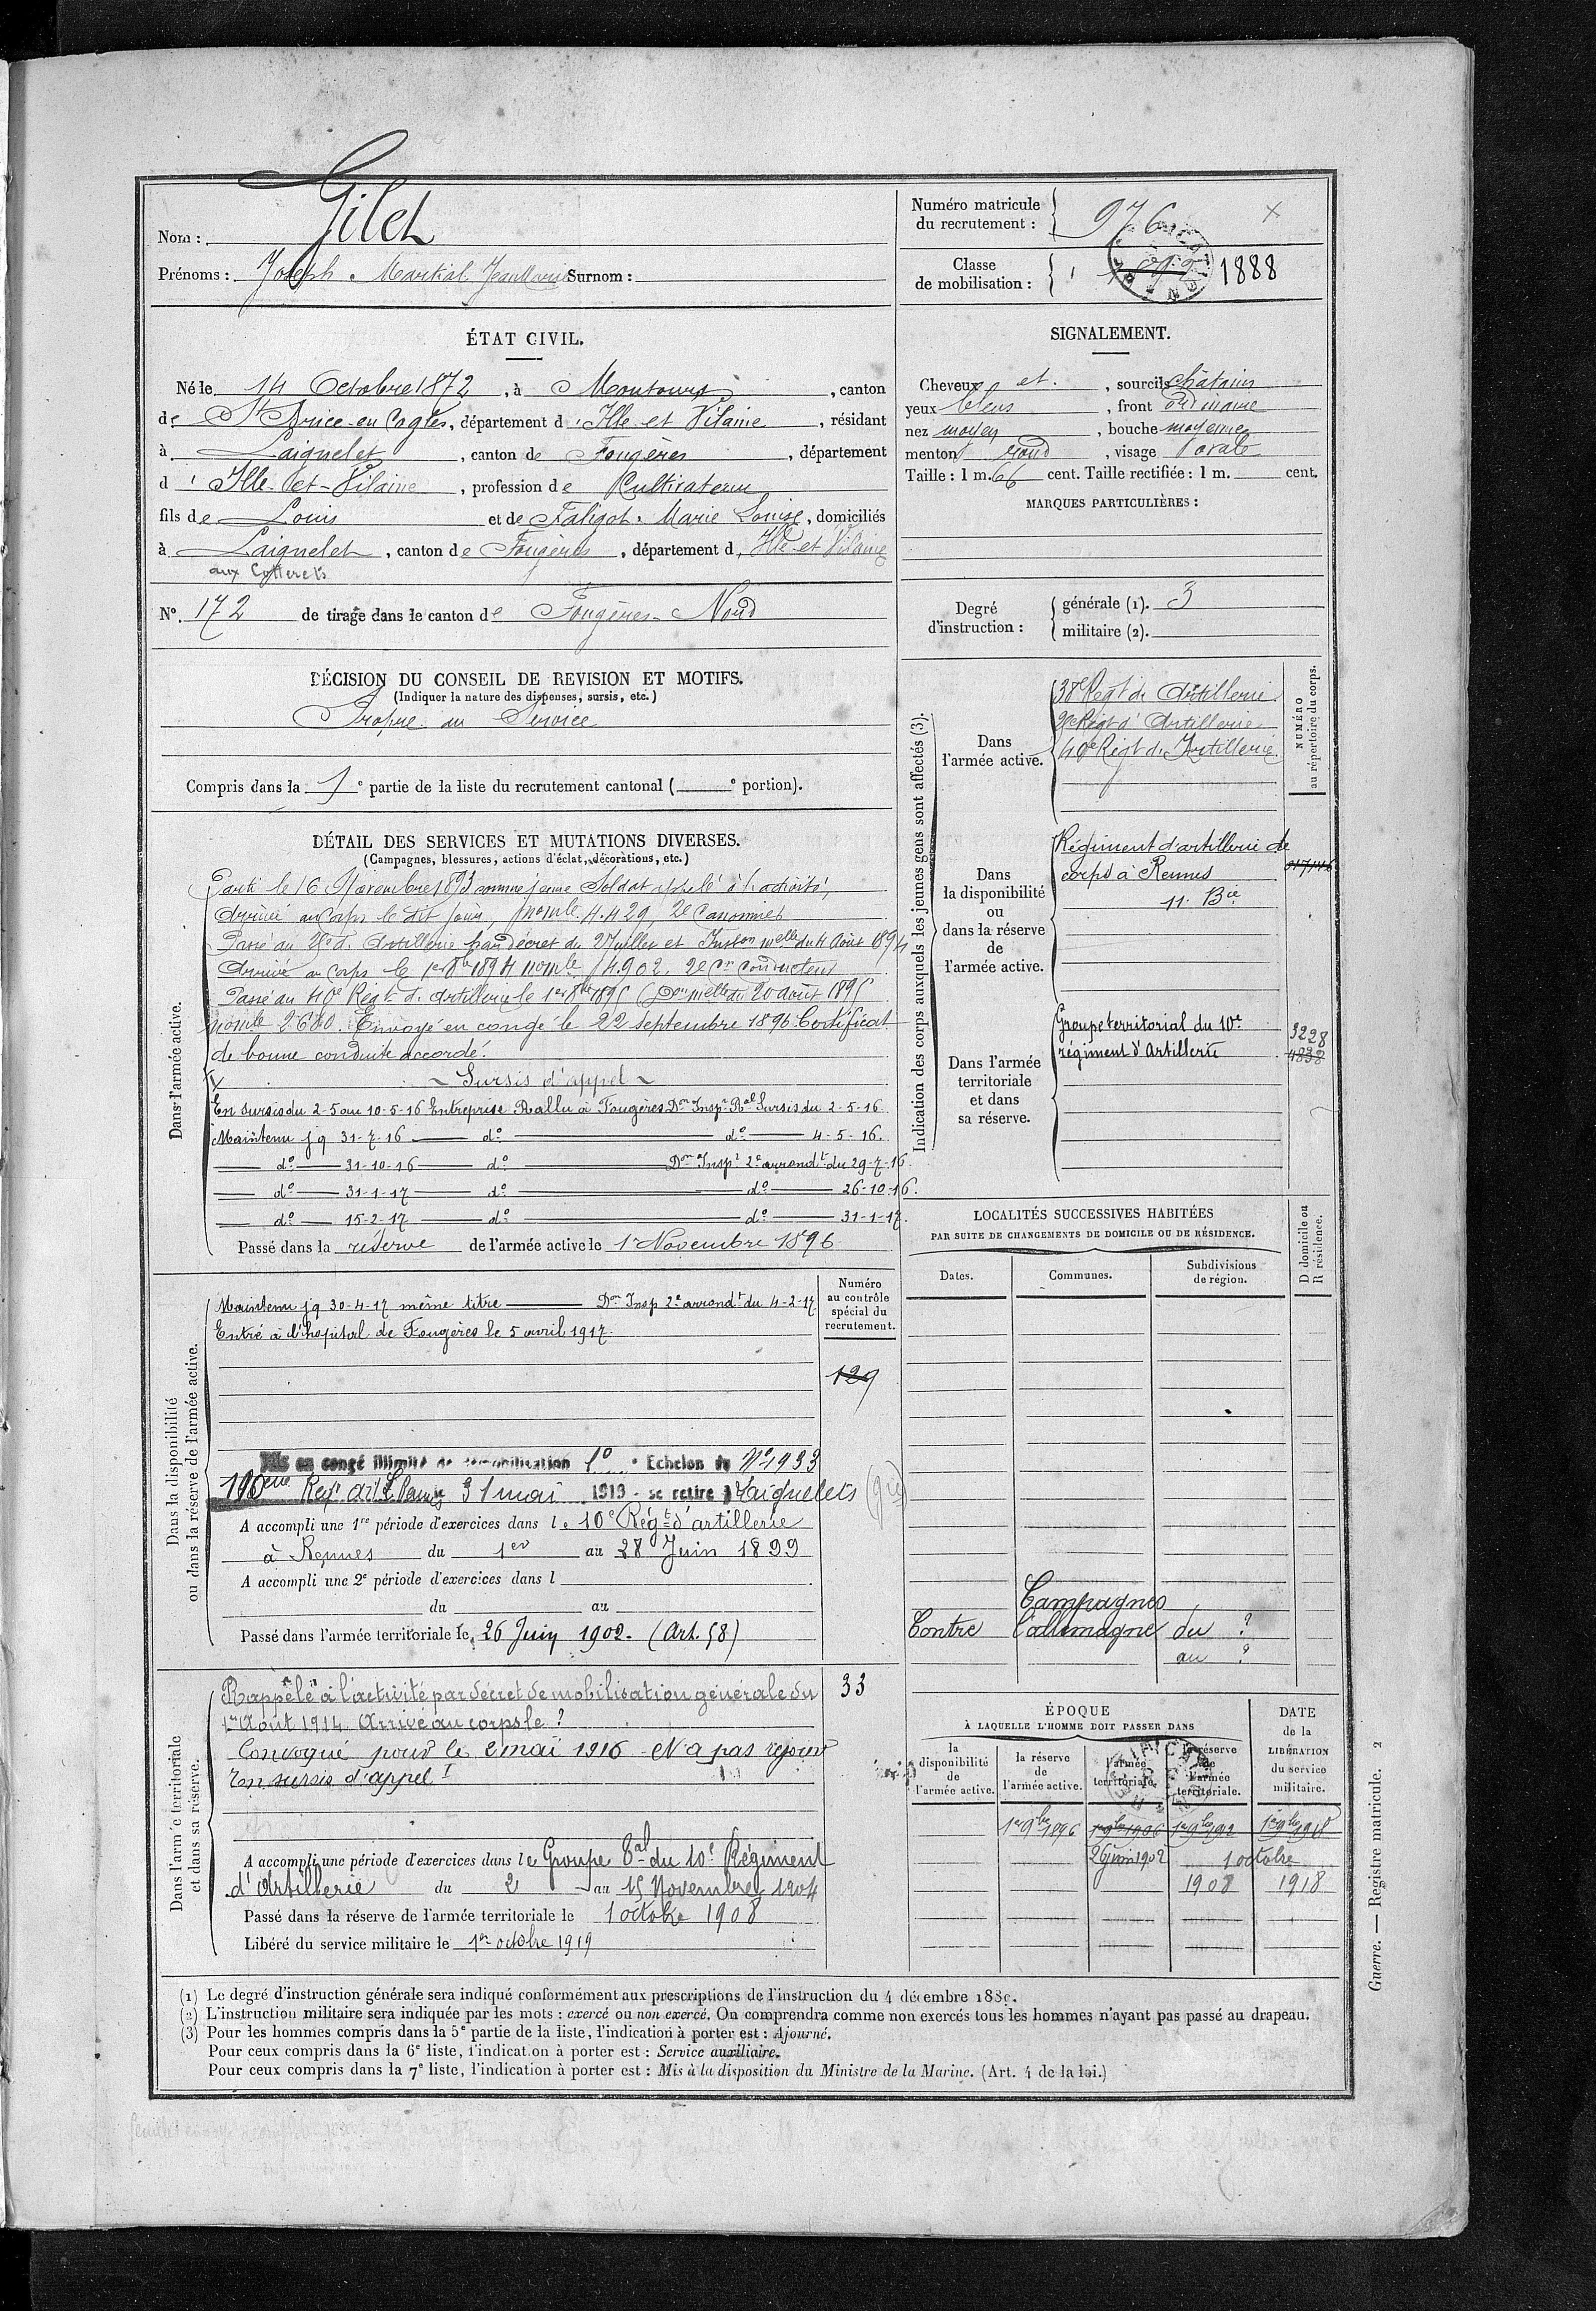 Nom : Gilet
Prénoms : Joseph Martial Jean Marie Surnom :
Numéro matricule du recrutement : 976
Classe de mobilisation : 1892 1888
ÉTAT CIVIL.
Né le 14 Octobre 1872, à Montours, canton
de St Brice-en-Cogles, département d'Ille et Vilaine, résidant
à Laignelet, canton de Fougères, département
d'Ille-et-Vilaine, profession de Cultivateur
fils de Louis et de Faligot Marie Louise, domiciliés
à Laignelet, canton de Fougères, département d'Ille et Vilaine
aux Cotterets
No. 172 de tirage dans le canton de Fougères-Nord
SIGNALEMENT.
Cheveux et, sourcils châtains
yeux bleus, front ordinaire
nez moyen, bouche moyenne
menton rond, visage ovale
Taille : 1 m. 66 cent. Taille rectifiée : 1 m. cent.
MARQUES PARTICULIÈRES :
Degré d'instruction : générale (1). 3
militaire (2).
DÉCISION DU CONSEIL DE REVISION ET MOTIFS.
(Indiquer la nature des dispenses, sursis, etc.)
Propre au Service
Compris dans la 1e partie de la liste du recrutement cantonal ( e portion).
DÉTAIL DES SERVICES ET MUTATIONS DIVERSES.
(Campagnes, blessures, actions d'éclat, décorations, etc.)
Dans l'armée active.
Parti le 16 Novembre 1893 comme jeune Soldat appelé à l'activité,
Arrivé au Corps le dit jour, no mle 4.429, 2e Canonnier
Passé au d'Artillerie par décret du Juillet et Inston melle du 4 Août 1894
Arrivé au Corps le 1er 8bre 1894 no mle 14.902. 2e Cr Conducteur
Passé au 40e Régt d'Artillerie le 1er 8bre 1895 (Don melle du 20 août 1895
no mle 2680. Envoyé en congé le 22 Septembre 1896. Certificat
de bonne conduite accordé.
Sursis d'appel
En sursis du 2-5 au 10-5-16 Entreprise Rallu à Fougères Don Inspr Ral Sursis du 2-5-16
Maintenu jq 31-7-16 do do 4-5-16.
do 31-10-16 do Don Inspr 2e arrondt du 29-7-16.
do 31-1-17 do do 26-10-16.
do 15-2-17 do do 31-1-17.
Passé dans la réserve de l'armée active le 1er Novembre 1896
Dans la disponibilité ou dans la réserve de l'armée active.
Numéro au contrôle spécial du recrutement.
Maintenu jq 30-4-17 même titre Don Insp 2e arrondt du 4-2-17
Entré à l'hôpital de Fougères le 5 avril 1917.
129
Mis en congé illimité de démobilisation 1o Echelon du No 1933
190eme Regt Art L 31 mai 1919 - se retire à Laignelets
A accompli une 1re période d'exercices dans le 10e Régt d'artillerie
à Rennes du 1er au 28 Juin 1899
A accompli une 2e période d'exercices dans l
du au
Passé dans l'armée territoriale le 26 Juin 1902. (Art. 58)
Dans l'armée territoriale et dans sa réserve.
Rappelé à l'activité par décret de mobilisation générale du
1er Août 1914. Arrivé au corps le ?
33
Convoqué pour le 2 mai 1916 - N'a pas rejoint
En sursis d'appel
A accompli une période d'exercices dans le Groupe Tal du 10e Régiment
d'Artillerie du 2 au 15 Novembre 1904
Passé dans la réserve de l'armée territoriale le 1 octobre 1908
Libéré du service militaire le 1er octobre 1919
Indication des corps auxquels les jeunes gens sont affectés (3).
NUMÉRO au répertoire du corps.
Dans l'armée active.
38e Régt de Artillerie
Régt d'Artillerie
40e Régt d'Artillerie
Dans la disponibilité ou dans la réserve de l'armée active.
Régiment d'artillerie de
corps à Rennes
11. Bie
Dans l'armée territoriale et dans sa réserve.
Groupe territorial du 10e
régiment d'Artillerie
3228
4832
LOCALITÉS SUCCESSIVES HABITÉES
PAR SUITE DE CHANGEMENTS DE DOMICILE OU DE RÉSIDENCE.
D domicile ou R résidence.
Dates. Communes. Subdivisions de région.
Campagnes
Contre l'allemagne du ?
au ?
ÉPOQUE
À LAQUELLE L'HOMME DOIT PASSER DANS
la disponibilité de l'armée active.
la réserve de l'armée active.
l'armée territoriale.
la réserve de l'armée territoriale.
DATE de la LIBÉRATION du service militaire.
1er 9bre 1896 1er 9bre 1906 1er 9bre 1912 1er 9bre 1918
26 juin 1902 1 octobre
1908 1918
(1) Le degré d'instruction générale sera indiqué conformément aux prescriptions de l'instruction du 4 décembre 1889.
(2) L'instruction militaire sera indiquée par les mots : exercé ou non exercé. On comprendra comme non exercés tous les hommes n'ayant pas passé au drapeau.
(3) Pour les hommes compris dans la 5e partie de la liste, l'indication à porter est : Ajourné.
Pour ceux compris dans la 6e liste, l'indication à porter est : Service auxiliaire.
Pour ceux compris dans la 7e liste, l'indication à porter est : Mis à la disposition du Ministre de la Marine. (Art. 4 de la loi.)
Guerre. — Registre matricule. 2